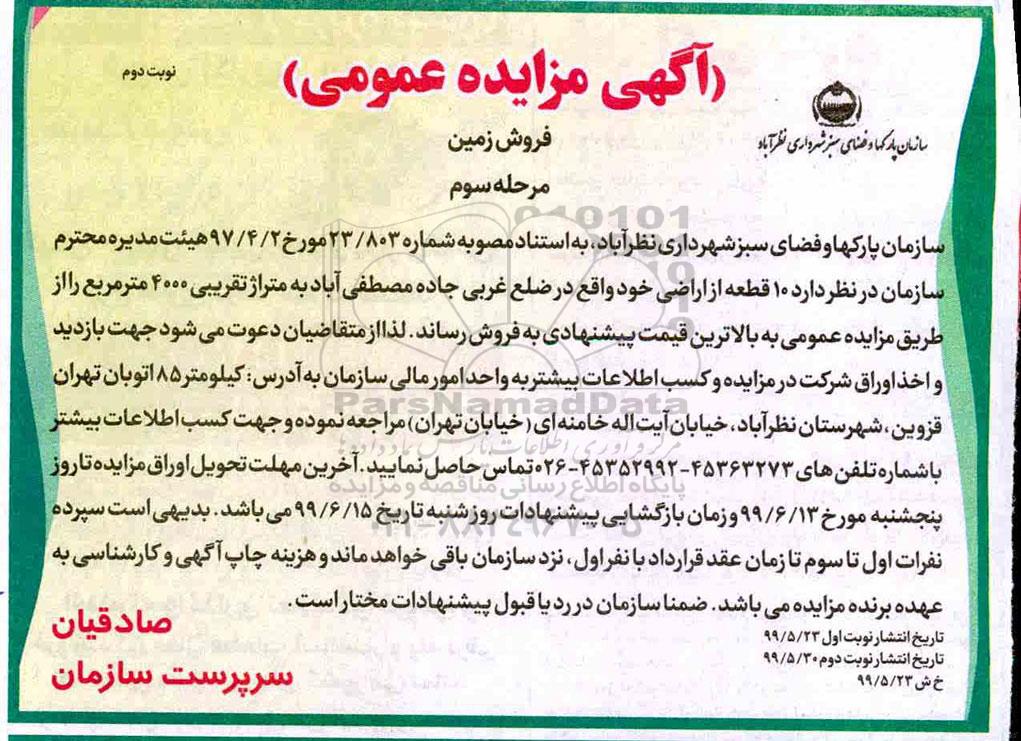 (آگهی مزایده عمومی)
نوبت دوم
فروش زمین
سازمان پارکها و فضای سبز شهرداری نظرآباد
مرحله سوم
سازمان پارکها و فضای سبز شهرداری نظرآباد، به استناد مصوبه شماره ۲۳/۸۰۳ مورخ ۹۷/۴/۲ هیئت مدیره محترم
سازمان در نظر دارد ۱۰ قطعه از اراضی خود واقع در ضلع غربی جاده مصطفی آباد به متراژ تقریبی ۴۰۰۰ مترمربع را از
طریق مزایده عمومی به بالاترین قیمت پیشنهادی به فروش رساند. لذا از متقاضیان دعوت می شود جهت بازدید
و اخذ اوراق شرکت در مزایده و کسب اطلاعات بیشتر به واحد امور مالی سازمان به آدرس: کیلومتر ۸۵ اتوبان تهران
قزوین، شهرستان نظرآباد، خیابان آیت اله خامنه ای (خیابان تهران) مراجعه نموده و جهت کسب اطلاعات بیشتر
با شماره تلفن های ۴۵۳۶۳۲۷۳-۴۵۳۵۲۹۹۲-۰۲۶ تماس حاصل نمایید. آخرین مهلت تحویل اوراق مزایده تا روز
پنجشنبه مورخ ۹۹/۶/۱۳ و زمان بازگشایی پیشنهادات روز شنبه تاریخ ۹۹/۶/۱۵ می باشد. بدیهی است سپرده
نفرات اول تا سوم تا زمان عقد قرارداد با نفر اول، نزد سازمان باقی خواهد ماند و هزینه چاپ آگهی و کارشناسی به
عهده برنده مزایده می باشد. ضمنا سازمان در رد یا قبول پیشنهادات مختار است.
تاریخ انتشار نوبت اول ۹۹/۵/۲۳
تاریخ انتشار نوبت دوم ۹۹/۵/۳۰
خ ش ۹۹/۵/۲۳
صادقیان
سرپرست سازمان
ParsNamadData
پایگاه اطلاع رسانی مناقصه و مزایده